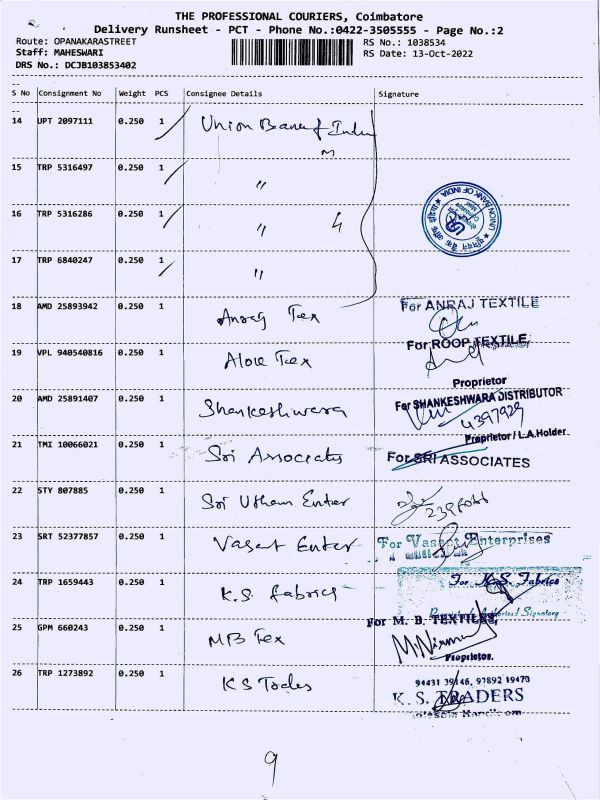 THE PROFESSIONAL COURIERS, Coimbatore
Delivery Runsheet - PCT - Phone No.:0422-3505555 - Page No.:2
Route: OPANAKARASTREET RS No.: 1038534
Staff: MAHESWARI RS Date: 13-Oct-2022
DRS No.: DCJB103853402
S No Consignment No Weight PCS Consignee Details Signature
14 UPT 2097111 0.250 1 Union Bank of India
15 TRP 5316497 0.250 1 "
16 TRP 5316286 0.250 1 " 4
UNION BANK OF INDIA
17 TRP 6840247 0.250 1 "
18 AMD 25893942 0.250 1 Anraj Tex For ANRAJ TEXTILE
19 VPL 940540816 0.250 1 Tex For ROOP TEXTILE,
Proprietor
20 AMD 25891407 0.250 1 Shankeshwara For SHANKESHWARA DISTRIBUTOR
4397929
Proprietor / L.A.Holder.
21 TMI 10066021 0.250 1 Sri Associates For SRI ASSOCIATES
22 STY 807885 0.250 1 Sri Utham Enter
23 SRT 52377857 0.250 1 Vasant Enter For Vasant Enterprises
24 TRP 1659443 0.250 1 K.S. fabrics For K.S. Fabrics
25 GPM 660243 0.250 1 MB Tex For M. B. TEXTILES,
Proprietor.
26 TRP 1273892 0.250 1 KS Trades 94431 39146, 97892 19470
K. S. TRADERS
9